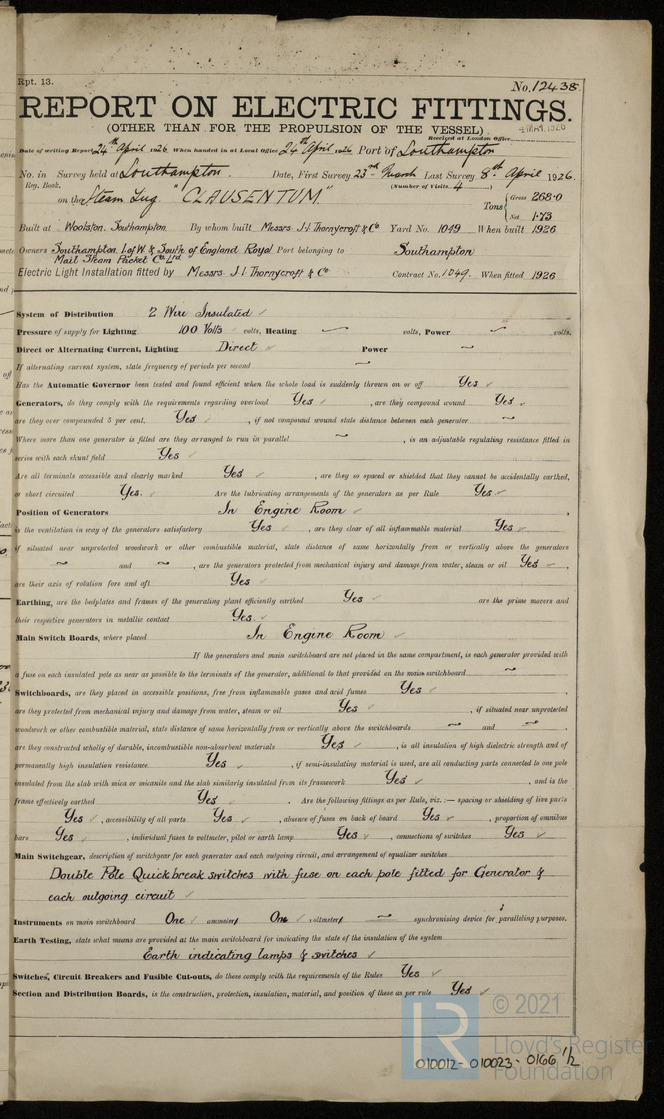 Rpt. 13.
No. 12438
REPORT ON ELECTRIC FITTINGS.
(OTHER THAN FOR THE PROPULSION OF THE VESSEL)
Received at London Office
Date of writing Report 24th April 1926 When handed in at Local Office 24th April 1926 Port of Southampton
No. in Survey held at Southampton. Date, First Survey 23rd March Last Survey 8th April 1926.
Reg. Book. (Number of Visits 4)
on the Steam Tug "CLAUSENTUM." Tons { Gross 268.0
Net 1.73
Built at Woolston. Southampton. By whom built Messrs. J.I. Thornycroft & Co Yard No. 1049 When built 1926
Owners Southampton. I of W. & South of England Royal Port belonging to Southampton
Mail Steam Packet Co. Ltd
Electric Light Installation fitted by Messrs. J.I. Thornycroft & Co Contract No. 1049. When fitted 1926
System of Distribution 2 Wire Insulated
Pressure of supply for Lighting 100 Volts volts, Heating volts, Power volts.
Direct or Alternating Current, Lighting Direct Power
If alternating current system, state frequency of periods per second
Has the Automatic Governor been tested and found efficient when the whole load is suddenly thrown on or off Yes
Generators, do they comply with the requirements regarding overload Yes, are they compound wound Yes
are they over compounded 5 per cent. Yes, if not compound wound state distance between each generator
Where more than one generator is fitted are they arranged to run in parallel, is an adjustable regulating resistance fitted in
series with each shunt field Yes
Are all terminals accessible and clearly marked Yes, are they so spaced or shielded that they cannot be accidentally earthed,
or short circuited Yes. Are the lubricating arrangements of the generators as per Rule Yes
Position of Generators In Engine Room,
is the ventilation in way of the generators satisfactory Yes, are they clear of all inflammable material Yes
if situated near unprotected woodwork or other combustible material, state distance of same horizontally from or vertically above the generators
and , are the generators protected from mechanical injury and damage from water, steam or oil Yes,
are their axis of rotation fore and aft Yes
Earthing, are the bedplates and frames of the generating plant efficiently earthed Yes are the prime movers and
their respective generators in metallic contact Yes.
Main Switch Boards, where placed In Engine Room
If the generators and main switchboard are not placed in the same compartment, is each generator provided with
a fuse on each insulated pole as near as possible to the terminals of the generator, additional to that provided on the main switchboard
Switchboards, are they placed in accessible positions, free from inflammable gases and acid fumes Yes,
are they protected from mechanical injury and damage from water, steam or oil Yes, if situated near unprotected
woodwork or other combustible material, state distance of same horizontally from or vertically above the switchboards and ,
are they constructed wholly of durable, incombustible non-absorbent materials Yes, is all insulation of high dielectric strength and of
permanently high insulation resistance Yes, if semi-insulating material is used, are all conducting parts connected to one pole
insulated from the slab with mica or micanite and the slab similarly insulated from its framework Yes, and is the
frame effectively earthed Yes. Are the following fittings as per Rule, viz.:— spacing or shielding of live parts
Yes, accessibility of all parts Yes, absence of fuses on back of board Yes, proportion of omnibus
bars Yes, individual fuses to voltmeter, pilot or earth lamp Yes, connections of switches Yes
Main Switchgear, description of switchgear for each generator and each outgoing circuit, and arrangement of equalizer switches
Double Pole Quickbreak switches with fuse on each pole fitted for Generator &
each outgoing circuit
Instruments on main switchboard One ammeter One voltmeter synchronising device for paralleling purposes.
Earth Testing, state what means are provided at the main switchboard for indicating the state of the insulation of the system
Earth indicating lamps & switches
Switches, Circuit Breakers and Fusible Cut-outs, do these comply with the requirements of the Rules Yes
Section and Distribution Boards, is the construction, protection, insulation, material, and position of these as per rule Yes
© 2021
LR
Lloyd's Register
Foundation
010012-010023-0166 1/2